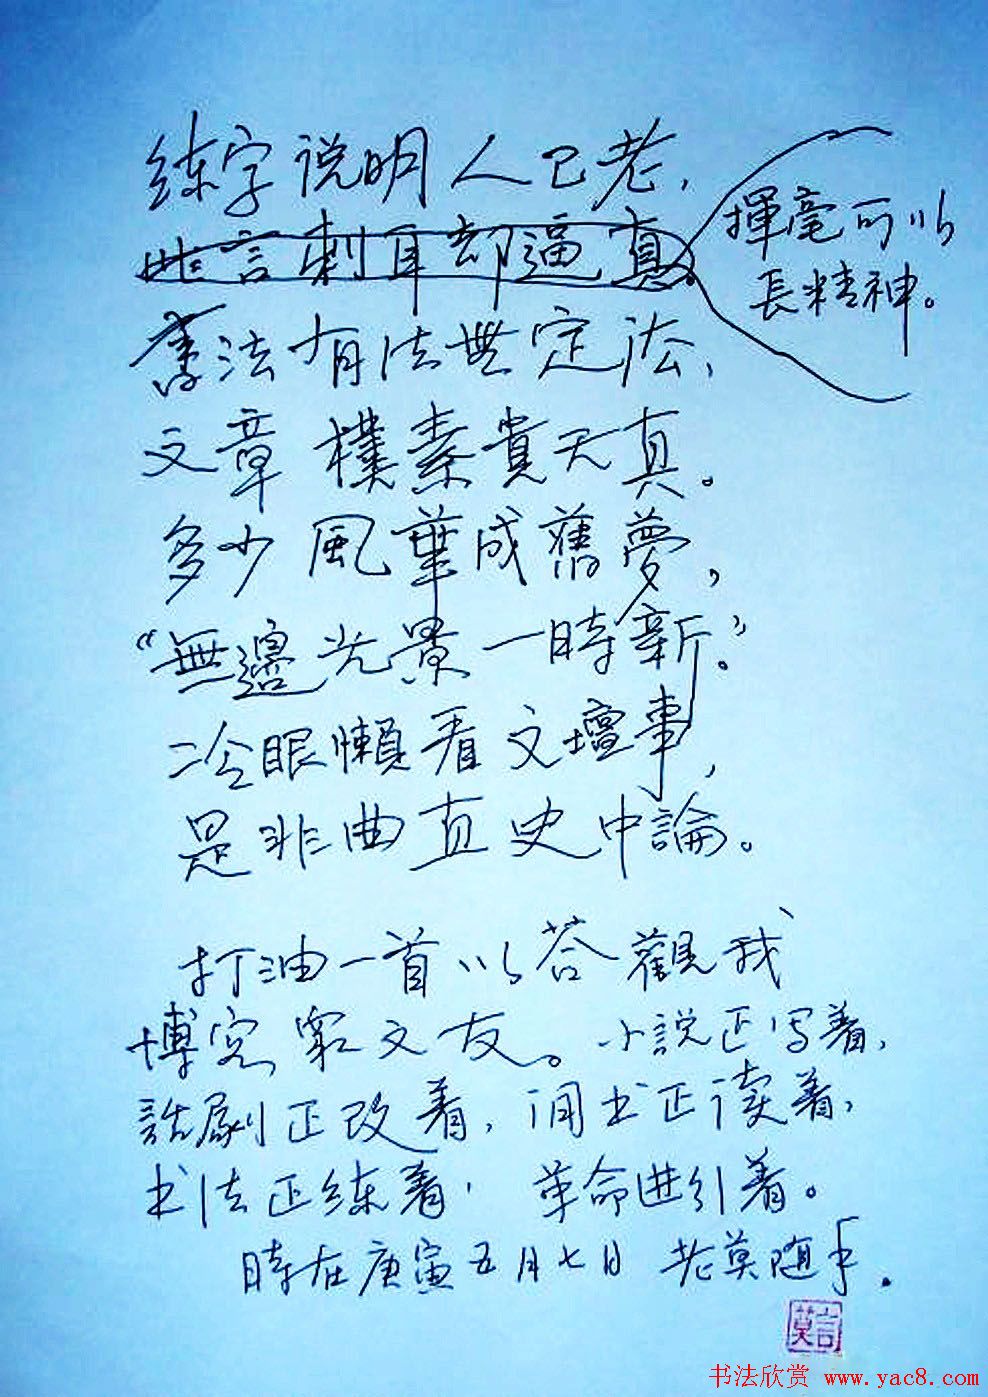 练字说明人已老，
此言刺耳却逼真。
揮毫可以
長精神。
書法有法無定法，
文章樸素貴天真。
多少風華成舊夢，
“無邊光景一時新。”
冷眼懶看文壇事，
是非曲直史中論。
打油一首以答觀我
博客眾文友。小説正写着，
話劇正改着，闲书正读着，
书法正练着，革命进行着。
時在庚寅五月七日 老莫随手。
莫言
书法欣赏 www.yac8.com